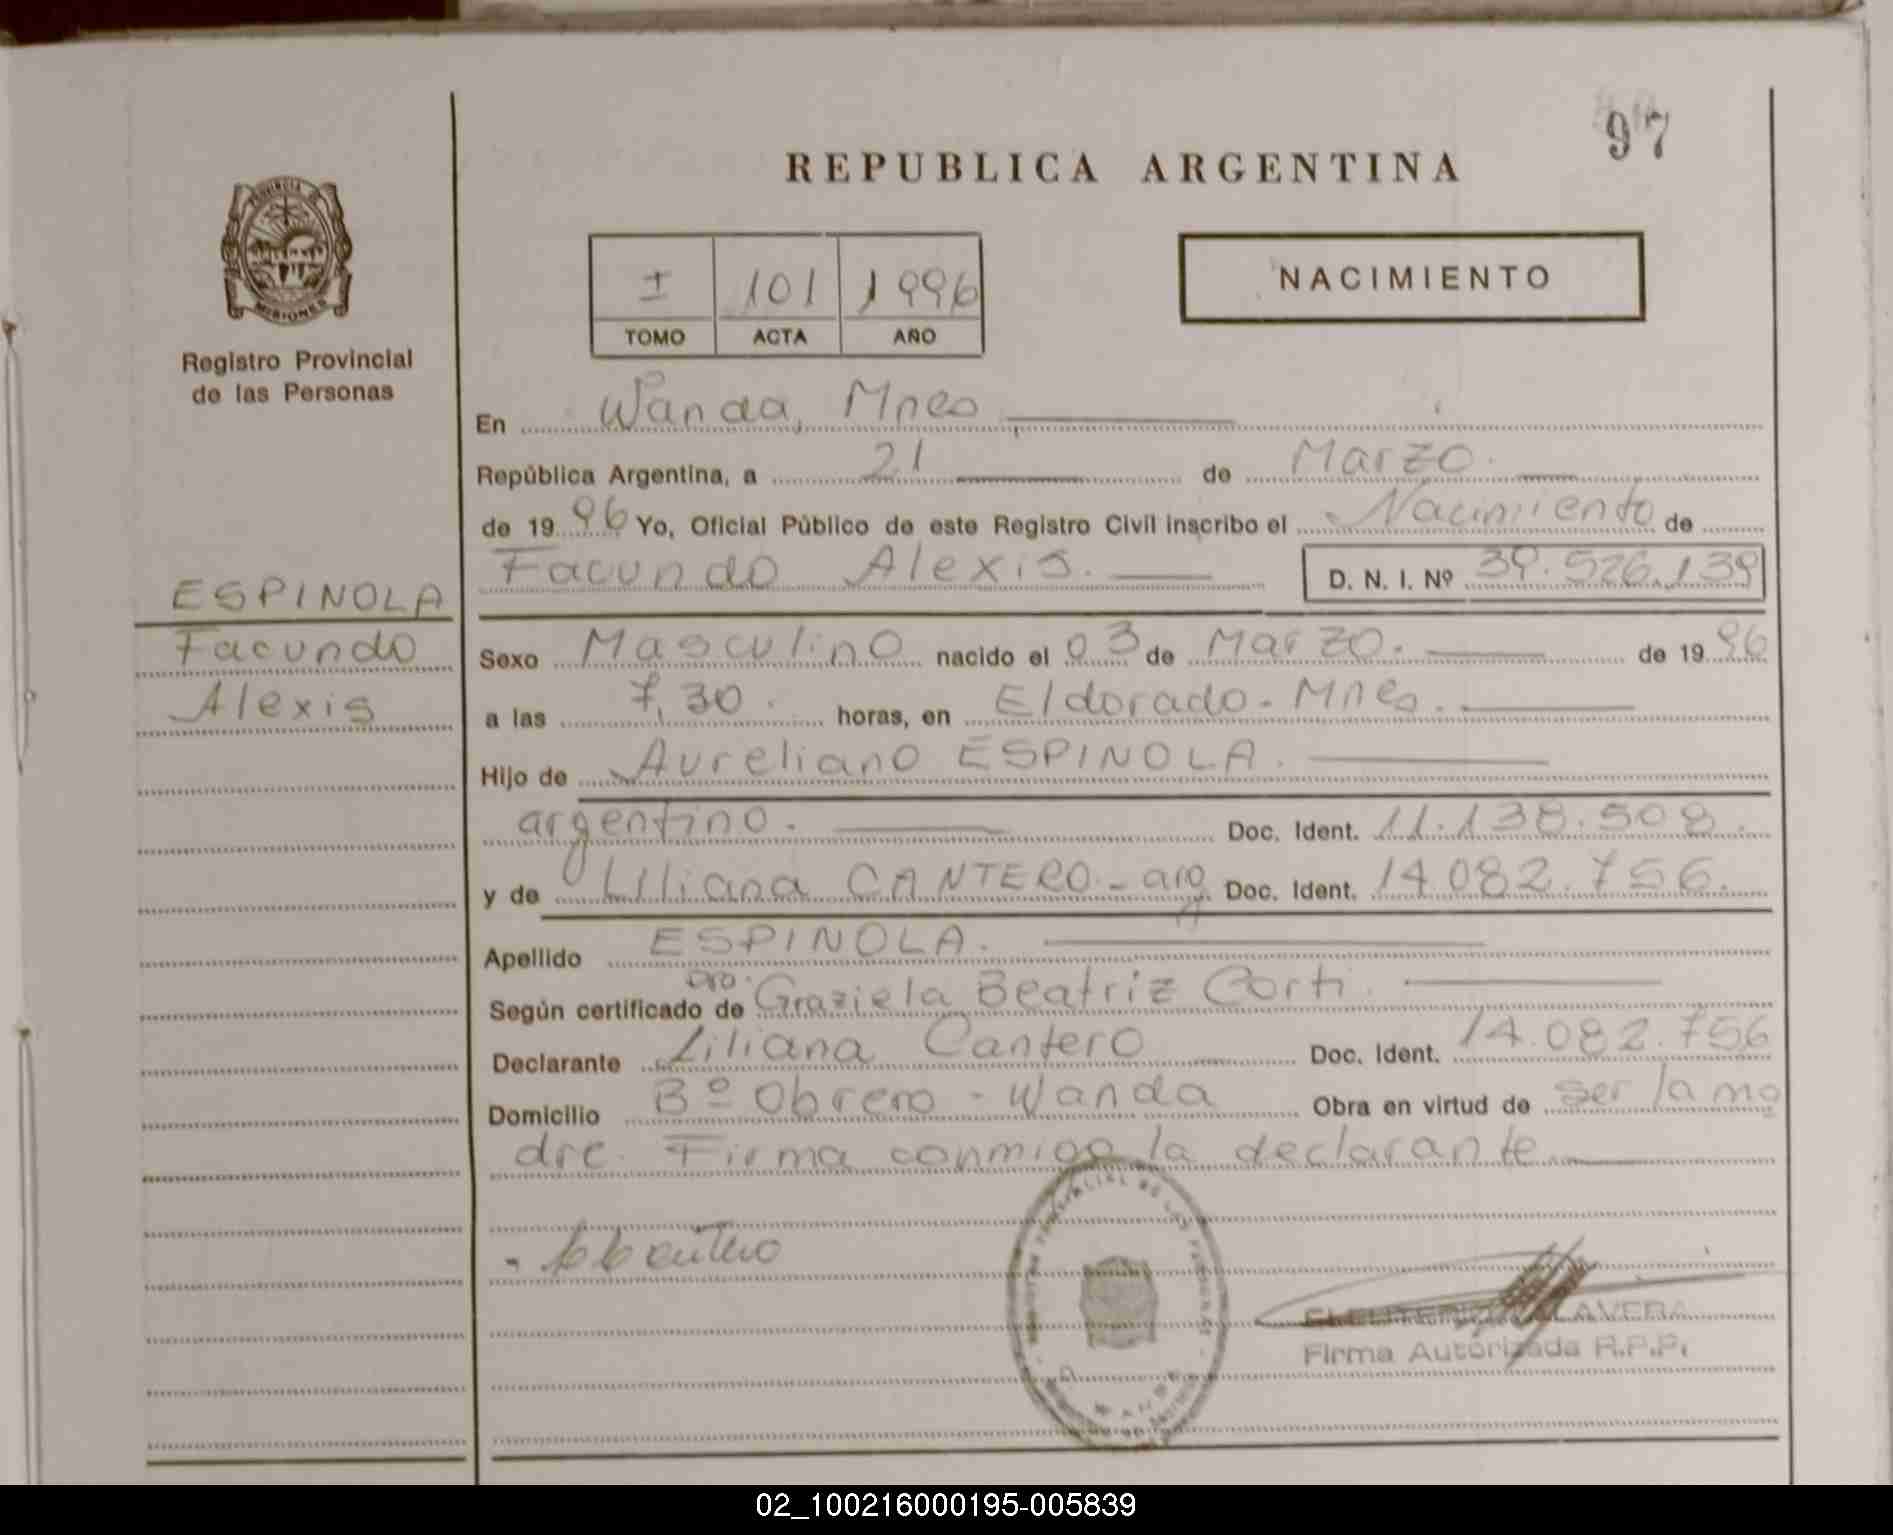 97
REPUBLICA ARGENTINA
PROVINCIA
MISIONES
Registro Provincial
de las Personas
I 101 1996
TOMO ACTA AÑO
NACIMIENTO
En Wanda, Mnes
República Argentina, a 21 de Marzo.
de 1996 Yo, Oficial Público de este Registro Civil inscribo el Nacimiento de
Facundo Alexis. D. N. I. Nº 39.526.139
ESPINOLA
Facundo
Alexis
Sexo Masculino nacido el 03 de Marzo. de 1996
a las 7,30. horas, en Eldorado - Mnes.
Hijo de Aureliano ESPINOLA.
argentino. Doc. Ident. 11.138.508.
y de Liliana CANTERO - arg Doc. Ident. 14.082.756.
Apellido ESPINOLA.
Según certificado de Dra. Graziela Beatriz Corti.
Declarante Liliana Cantero Doc. Ident. 14.082.756
Domicilio Bº Obrero - Wanda Obra en virtud de ser la ma
dre. Firma conmigo la declarante
PROVINCIAL DE LAS PERSONAS
WANDA
Firma Autorizada R.P.P.
02_100216000195-005839